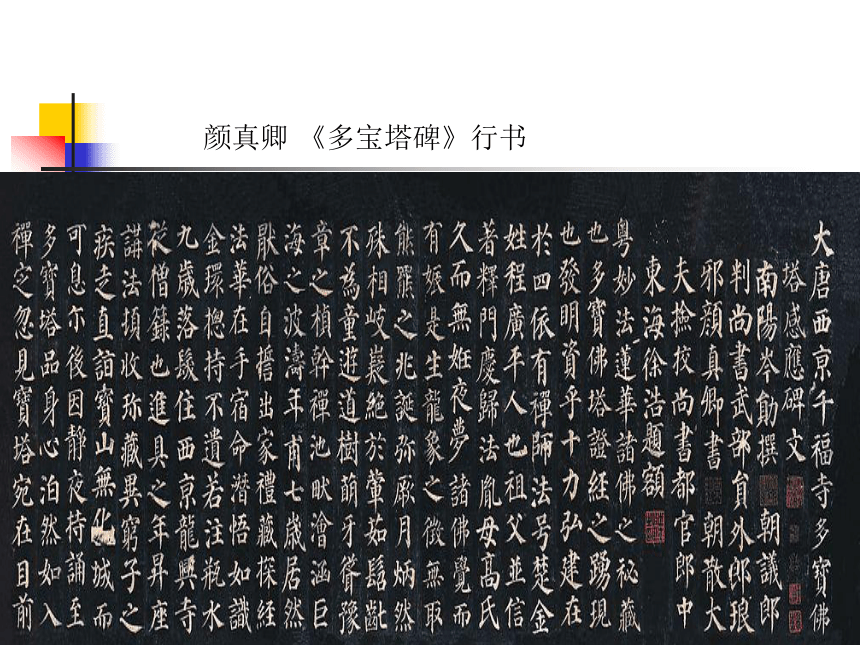 颜真卿 《多宝塔碑》行书
大唐西京千福寺多寶佛
塔感應碑文
南陽岑勛撰 朝議郎
判尚書武部員外郎琅
邪顏真卿書 朝散大
夫撿校尚書都官郎中
東海徐浩題額
粤妙法蓮華諸佛之秘藏
也多寶佛塔證經之踴現
也發明資乎十力弘建在
於四依有禪師法号楚金
姓程廣平人也祖父並信
著釋門慶歸法胤母高氏
久而無妊夜夢諸佛覺而
有娠是生龍象之徵無取
熊羆之兆誕弥厥月炳然
殊相岐嶷絕於葷茹髫齔
不為童遊道樹萌牙聳豫
章之楨幹禪池畎澮涵巨
海之波濤年甫七歲居然
厭俗自誓出家禮藏探經
法華在手宿命潛悟如識
金環揔持不遺若注瓶水
九歲落髮住西京龍興寺
從僧籙也進具之年昇座
講法頓收珎藏異窮子之
疾走直詣寶山無化城而
可息尒後因靜夜持誦至
多寶塔品身心泊然如入
禪定忽見寶塔宛在目前